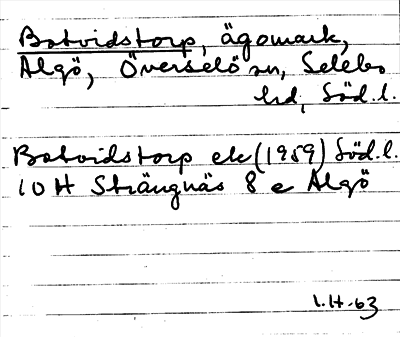 Botvidstorp, ägomark,
Algö, Överselö sn, Selebo
hd, Söd.l.
Botvidstorp ek (1959) Söd.l.
10 H Strängnäs 8 e Algö
I.H-63